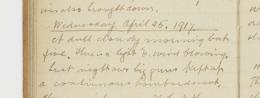 was also brought down.
Wednesday April 25. 1917.
A dull cloudy morning but
fine. There is a light E. wind blowing.
Last night our big guns kept up
a continuous bombardment,